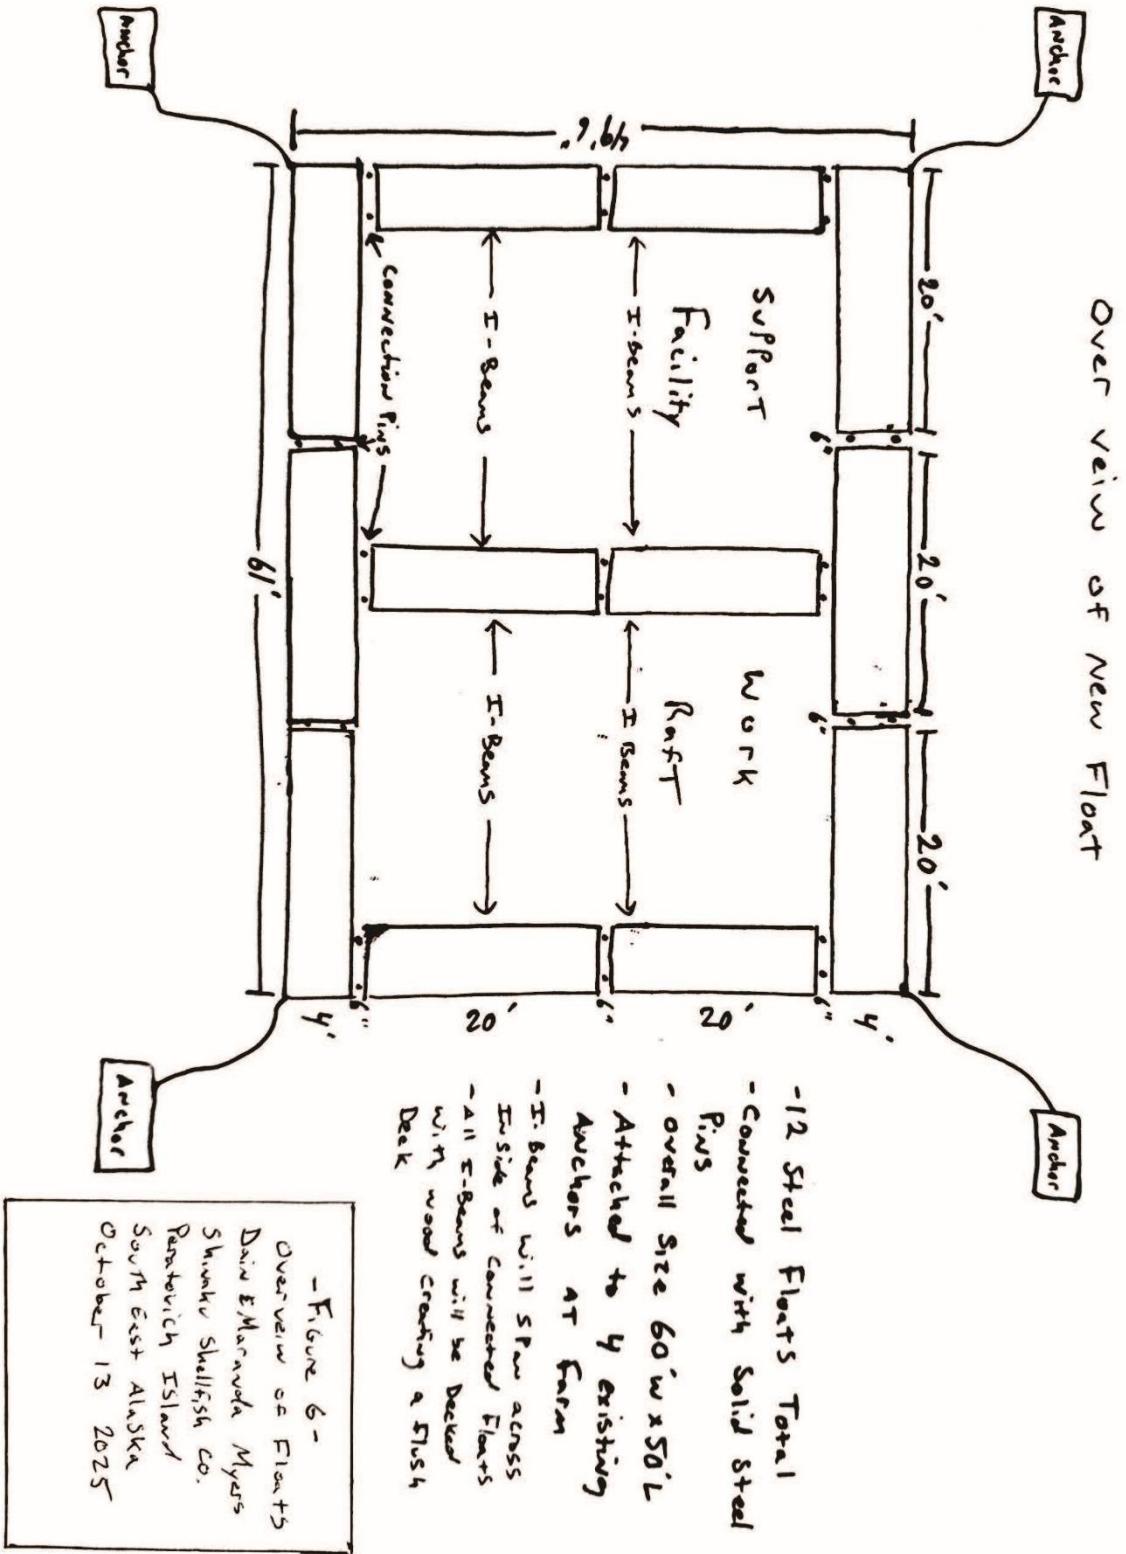 Over veiw of New Float
Anchor
Anchor
20'
20'
20'
6"
6"
49'6"
Support
Facility
Work
Raft
I-Beams
I Beams
I-Beams
I-Beams
Connection Pins
61'
4'
6"
20'
6"
20'
6"
4'
Anchor
Anchor
- 12 Steel Floats Total
- Connected with Solid Steel
Pins
- overall Size 60'W x 50'L
- Attached to 4 existing
Anchors AT Farm
- I-Beams will span across
Inside of connected Floats
- All I-Beams will be Decked
with wood creating a flush
Deck
- Figure 6 -
Over veiw of Floats
Dain & Maranda Myers
Shinaku Shellfish Co.
Peratovich Island
South East Alaska
October 13 2025